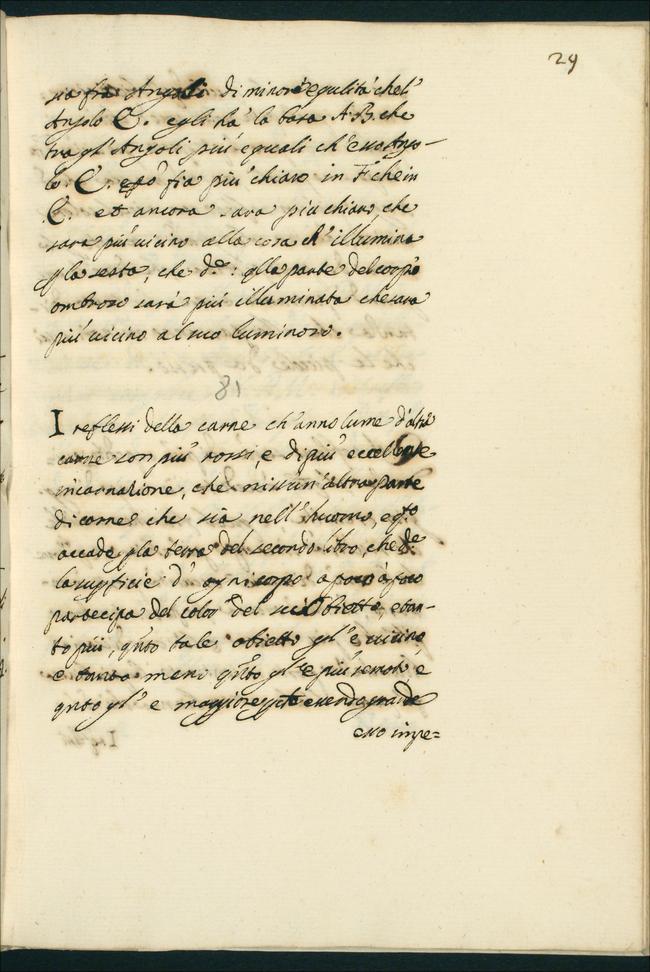 29
sia fra Angoli di minor' equalità che l'
Angolo E. egli ha' la basa A B. che
tra gl' Angoli più equali ch' esso Ango-
lo. E. e pò fia più chiaro in F che in
E. et ancora sara piu chiaro che
sara più vicino alla cosa ch' illumina
p la sesta, che dᵉ: qlla parte del corpo
ombroso sarà più illuminata che sara
più vicino al suo luminoso.
81
I reflessi della carne ch' anno lume d' altra
carne son più rossi, e di più eccellente
incarnatione, che nissun' altra parte
di carne che sia nell' huomo, e qᵗᵒ
accade p la terza del secondo libro che dᵉ
la supficie d' ogni corpo a poco à poco
partecipa del color del suo Obietto, e tan-
to più, qnto tale obietto gl' è vicino
e tanto meno qnto gl' è più remoto, e
qnto gl' e maggiore essendo grande
esso impe=